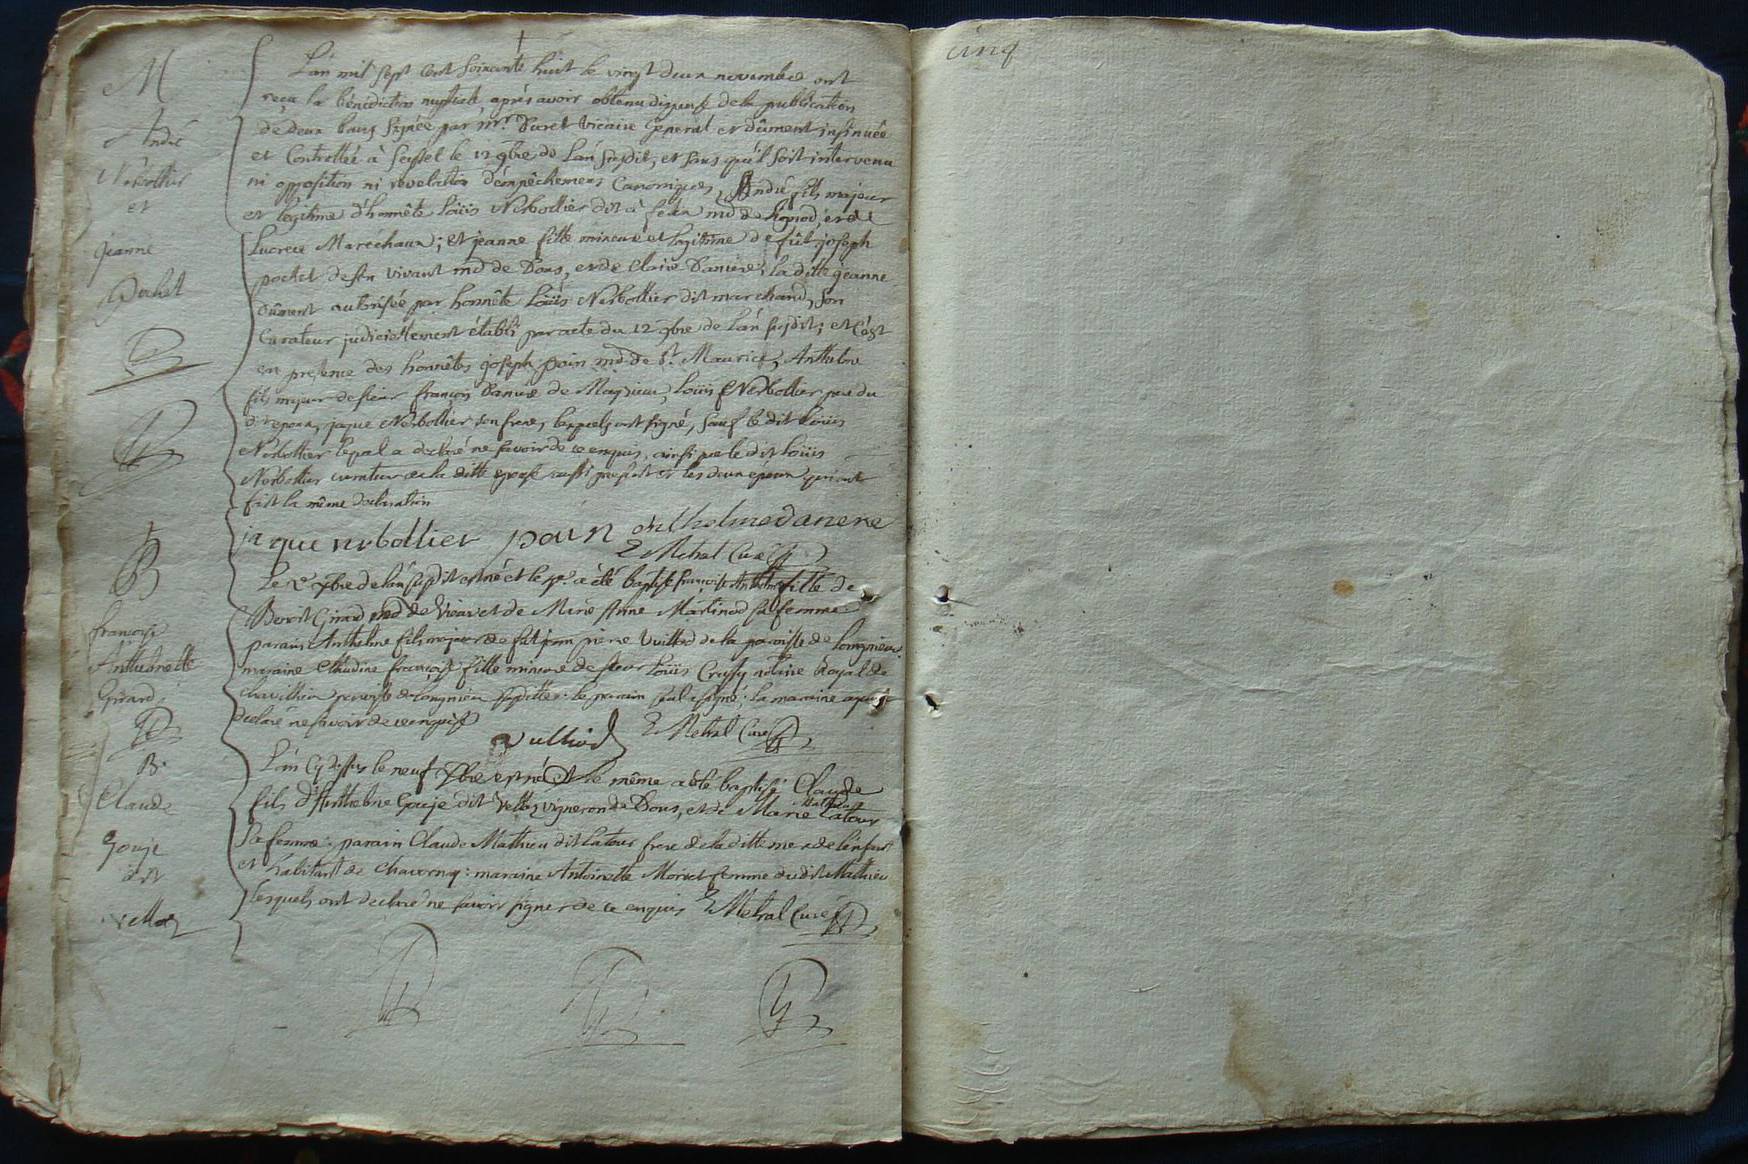 M
André
Nerbollier
et
jeanne
Pochet
L'an mil sept cent soixante huit le vingt deux novembre ont
reçu la bénédiction nuptiale, après avoir obtenu dispense de la publication
de deux bans signée par mr. Vicaire General et dûment insinuée
et Controllée à Seyssel le 12 9bre de l'an susdit, et sans qu'il soit intervenu
ni opposition ni revelation d'empêchemens Canoniques, André fils majeur
et légitime d'honnête Loüis Nerbollier dit à md de et de
Lucrece Maréchaux; et jeanne fille mineure et légitime de fût joseph
pochet de son vivant md de Dons, et de Claire Daniere; la ditte jeanne
dûment autorisée par honnête Loüis Nerbollier dit marchand, son
Curateur judiciellement établi par acte du 12 9bre de l'an susdit; et c'est
en presence des honnêtes joseph pain md de St. Maurice, Anthelme
fils majeur de sieur françois Daniere de Loüis Nerbollier pere du
dt epoux, jaque Nerbollier son frere, lesquels ont signé, sauf le dit Loüis
Nerbollier lequel a declaré ne savoir de ce enquis, ainsi que le dit Loüis
Nerbollier curateur de la ditte epouse aussi present et les deux époux qui ont
fait la même declaration
jaque nerbollier pain anthelme danere
Metral Curé
B
françoise
Anthelmette
Girard
Le xbre de l'an susdit est née et le a été baptisée françoise Anthelmette fille de
Benoit Girard md de et de Marie Anne Martinod sa femme
parain Anthelme fils majeur de fût pierre Vulliod de la paroisse de Lompnieu
maraine Claudine françoise fille mineure de sieur Loüis Crussy notaire Royal de
paroisse de Lompnieu susditte: le parain seul a signé; la maraine ayant
declaré ne savoir de ce enquise
Vulliod Metral Curé
B.
Claude
Goujé
dit
vellet
L'an Cy dessus le neuf xbre est né Et le même a été baptisé Claude
fils d'Anthelme Goujé dit vigneron de Dons, et de Marie Mathieu Latour
sa femme: parain Claude Mathieu dit Latour frere de la ditte mere de l'enfant
et habitant de Chavornay: maraine Antoinette femme du dit Mathieu
lesquels ont declaré ne savoir signer de ce enquis Metral Curé
cinq